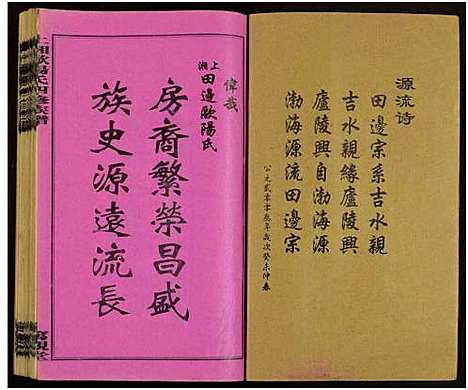 源流诗
田邊宗系吉水親
吉水親緣廬陵興
廬陵興自渤海源
渤海源流田邊宗
公元貳零零叁年歲次癸未仲春
偉哉
上湘
田邊歐陽氏
房裔繁榮昌盛
族史源遠流長
上湘歐陽氏四修族譜